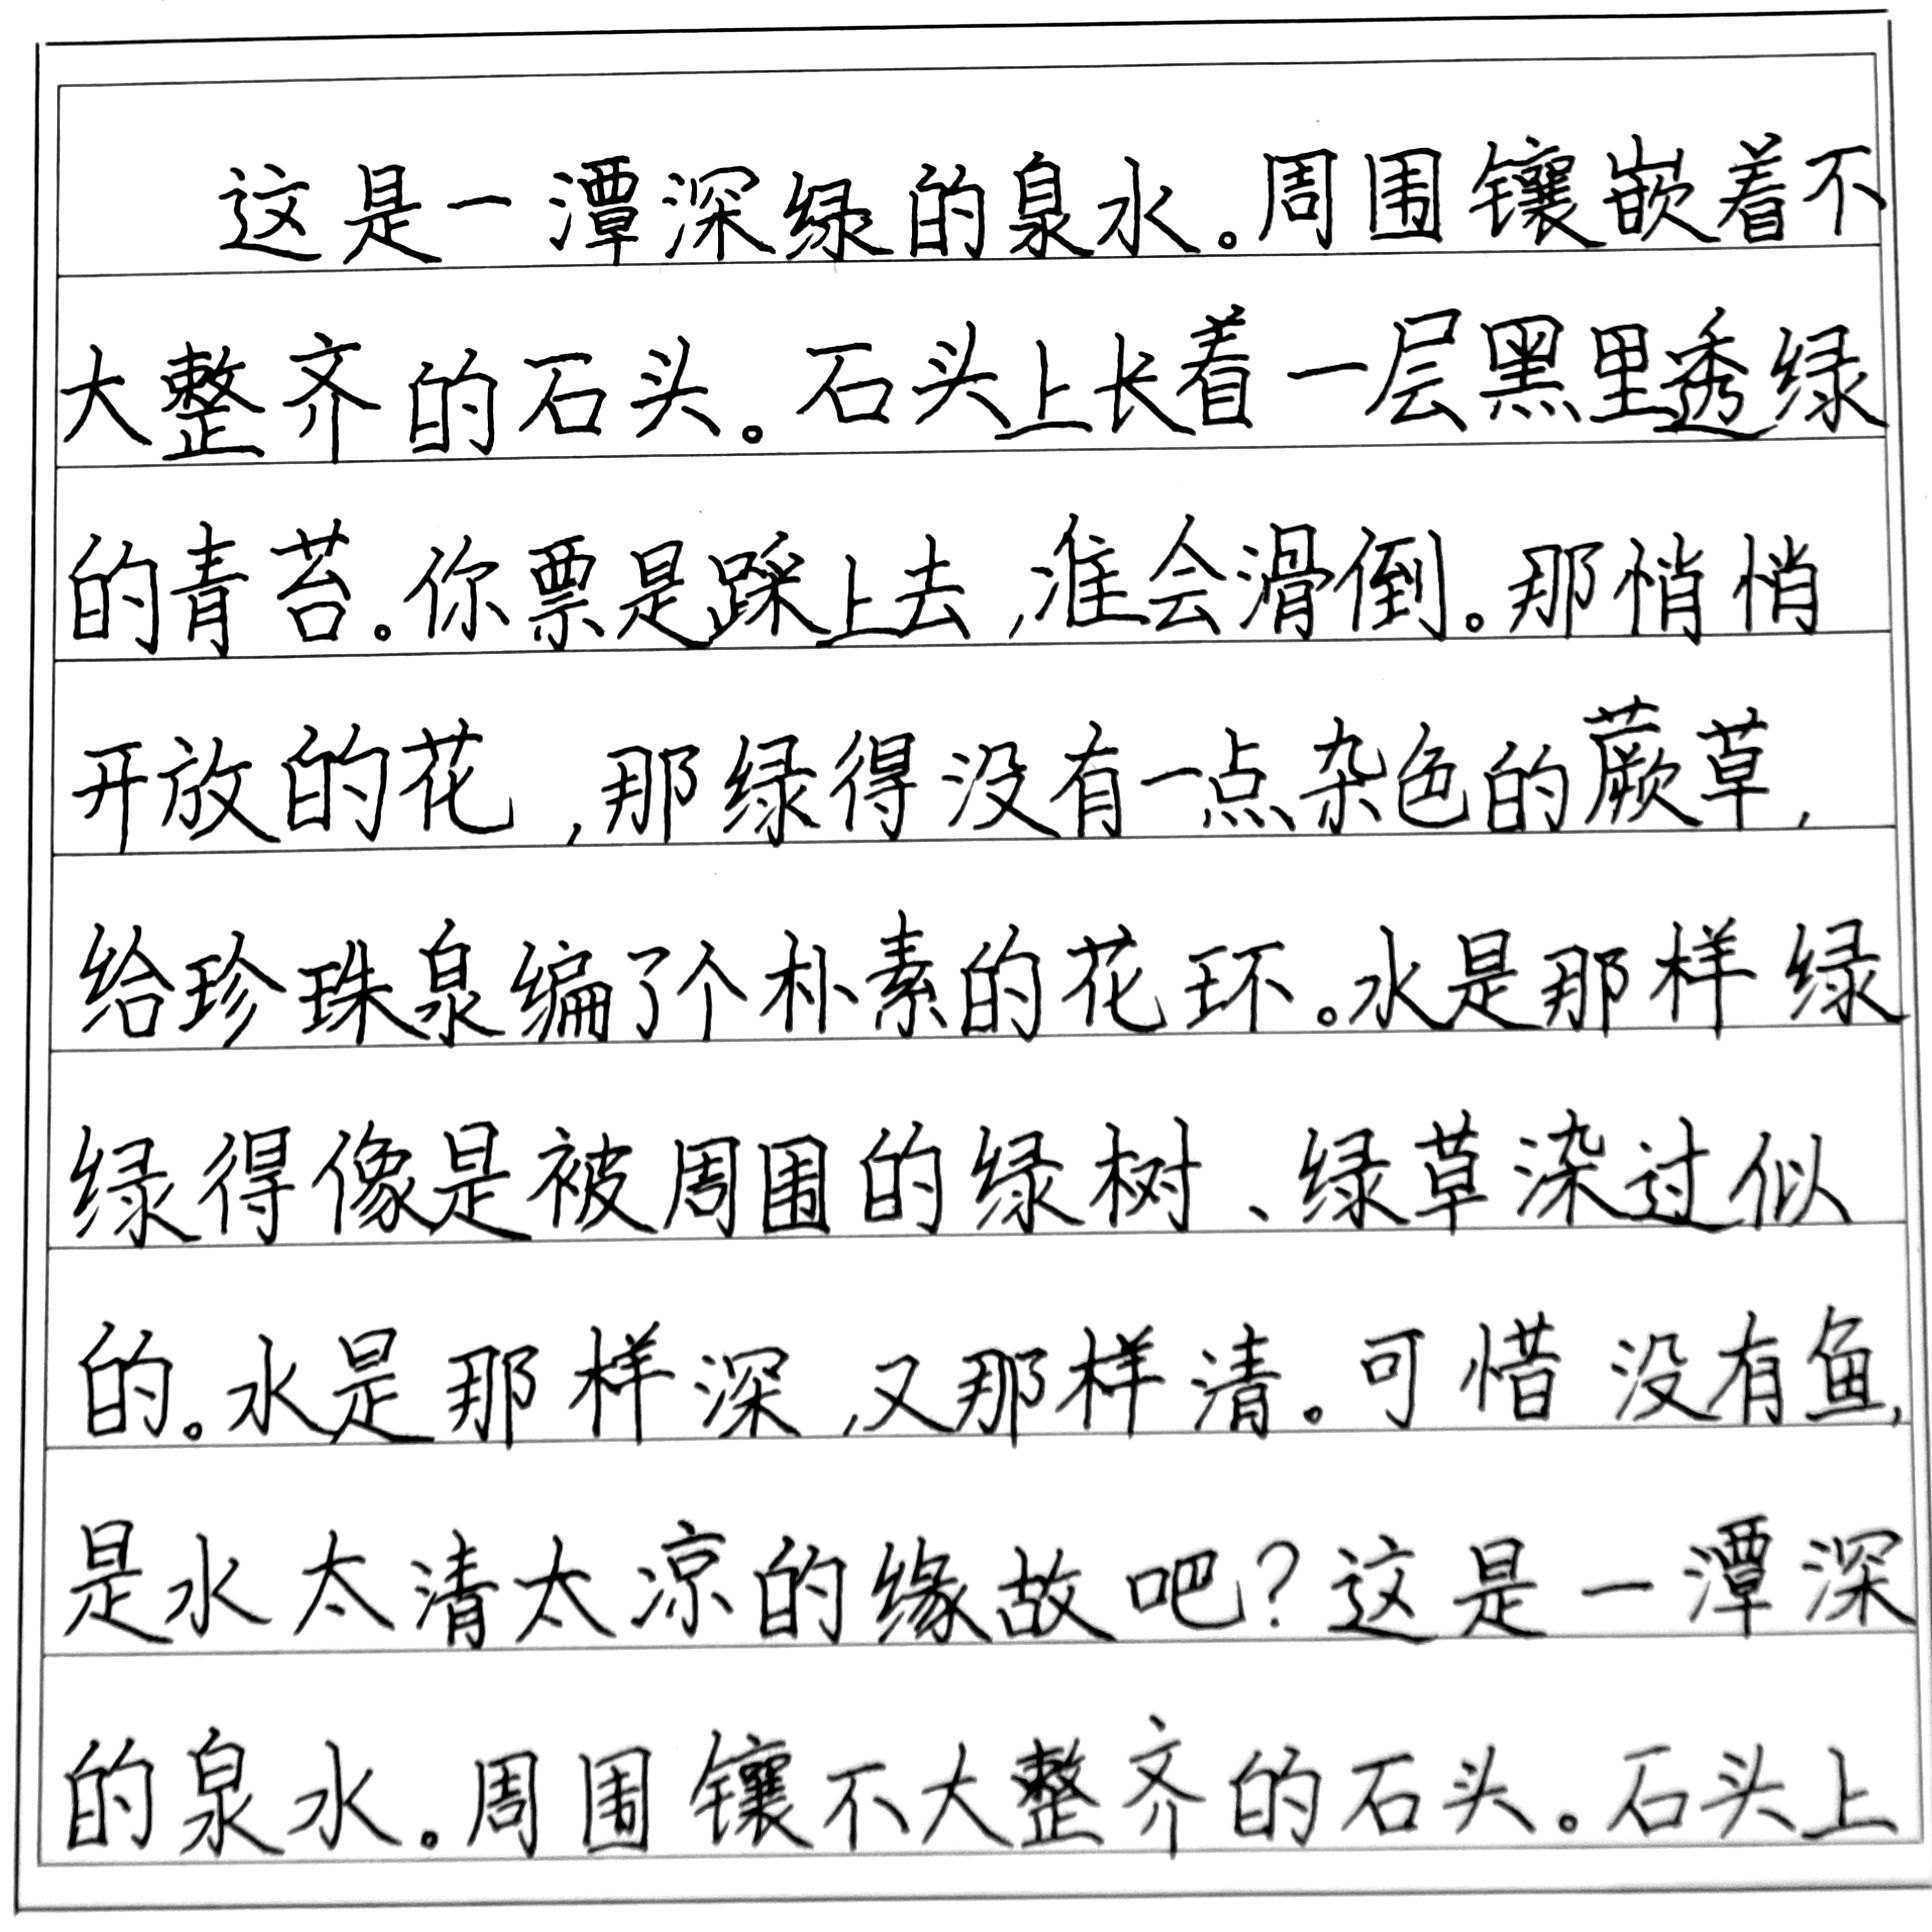 这是一潭深绿的泉水。周围镶嵌着不
大整齐的石头。石头上长着一层黑里透绿
的青苔。你票是踩上去,准会滑倒。那悄悄
开放的花,那绿得没有一点杂色的蕨草,
给珍珠泉编了个朴素的花环。水是那样绿
绿得像是被周围的绿树、绿草染过似
的。水是那样深,又那样清。可惜没有鱼,
是水太清太凉的缘故吧?这是一潭深
的泉水。周围镶不大整齐的石头。石头上